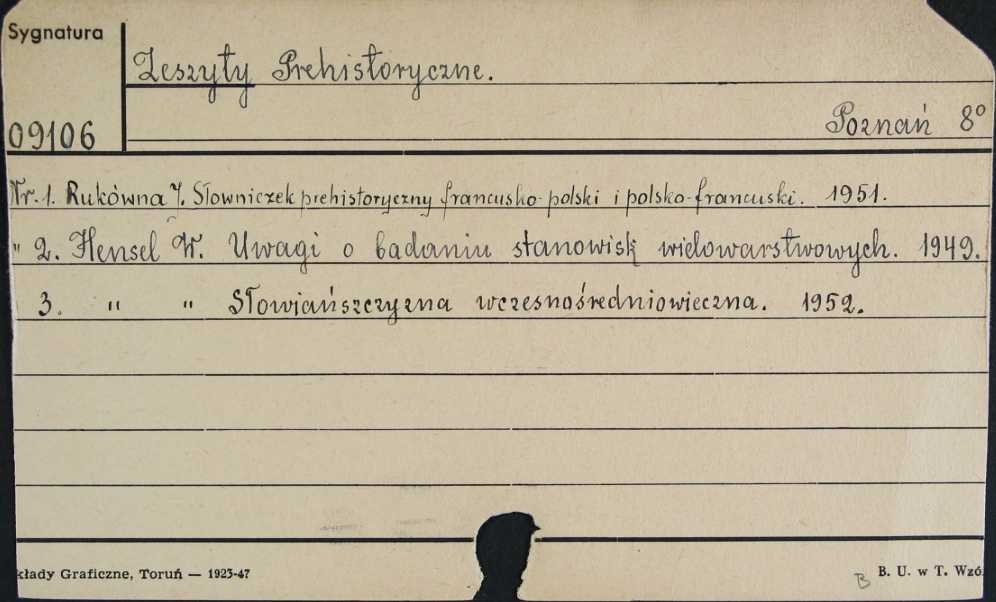 Sygnatura
Zeszyty Prehistoryczne.
09106
Poznań 8°
Nr. 1. Rukówna J. Słowniczek prehistoryczny francusko-polski i polsko-francuski. 1951.
" 2. Hensel W. Uwagi o badaniu stanowisk wielowarstwowych. 1949.
3. " " Słowiańszczyzna wczesnośredniowieczna. 1952.
kłady Graficzne, Toruń — 1923-47
B B. U. w T. Wzó